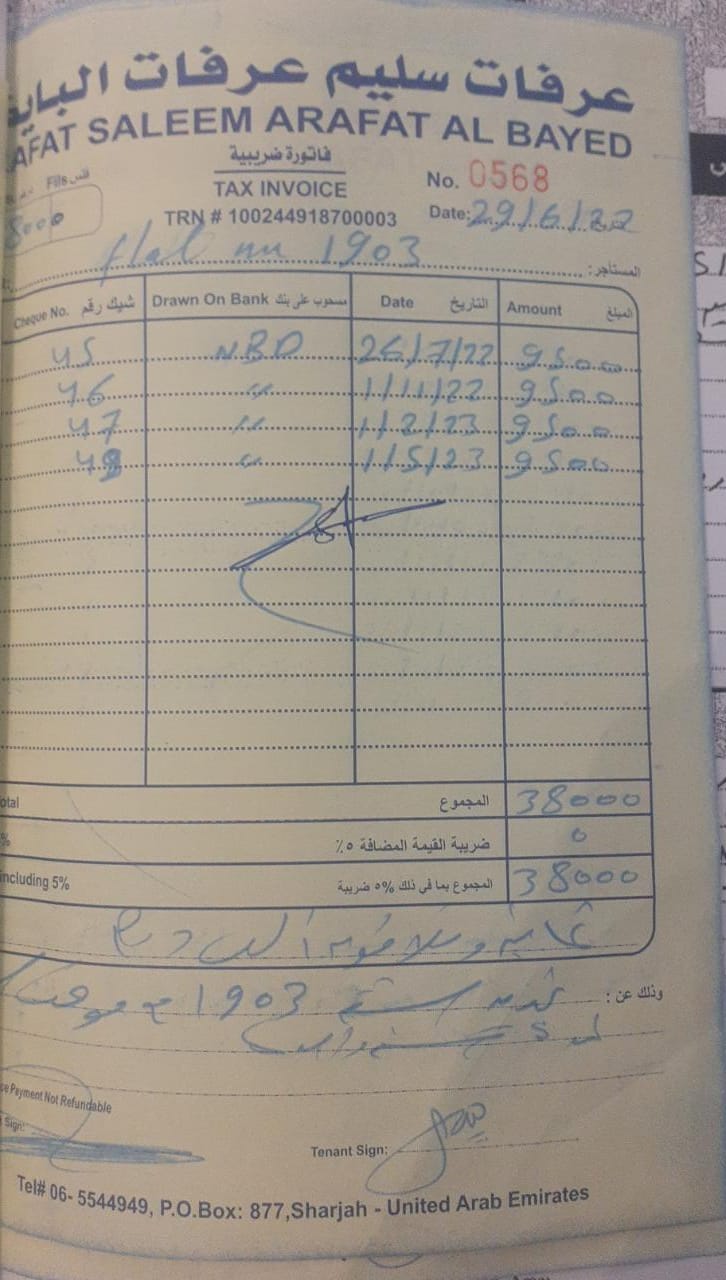 عرفات سليم عرفات الباي
AFAT SALEEM ARAFAT AL BAYED
فاتورة ضريبية
TAX INVOICE
No. 0568
Fils فلس
8000
TRN # 100244918700003
Date: 29/6/22
flat 1903
المستأجر:
Cheque No. شيك رقم Drawn On Bank مسحوب على بنك Date التاريخ Amount المبلغ
45 NBD 26/7/22 9500
46 " 1/11/22 9500
47 " 1/2/23 9500
48 " 1/5/23 9500
otal المجموع 38000
% ضريبة القيمة المضافة ٥٪ 0
including 5% المجموع بما في ذلك ٥% ضريبة 38000
ثمانية وثلاثون ألف درهم
وذلك عن: 1903
ce Payment Not Refundable
Sign:
Tenant Sign:
Tel# 06- 5544949, P.O.Box: 877,Sharjah - United Arab Emirates